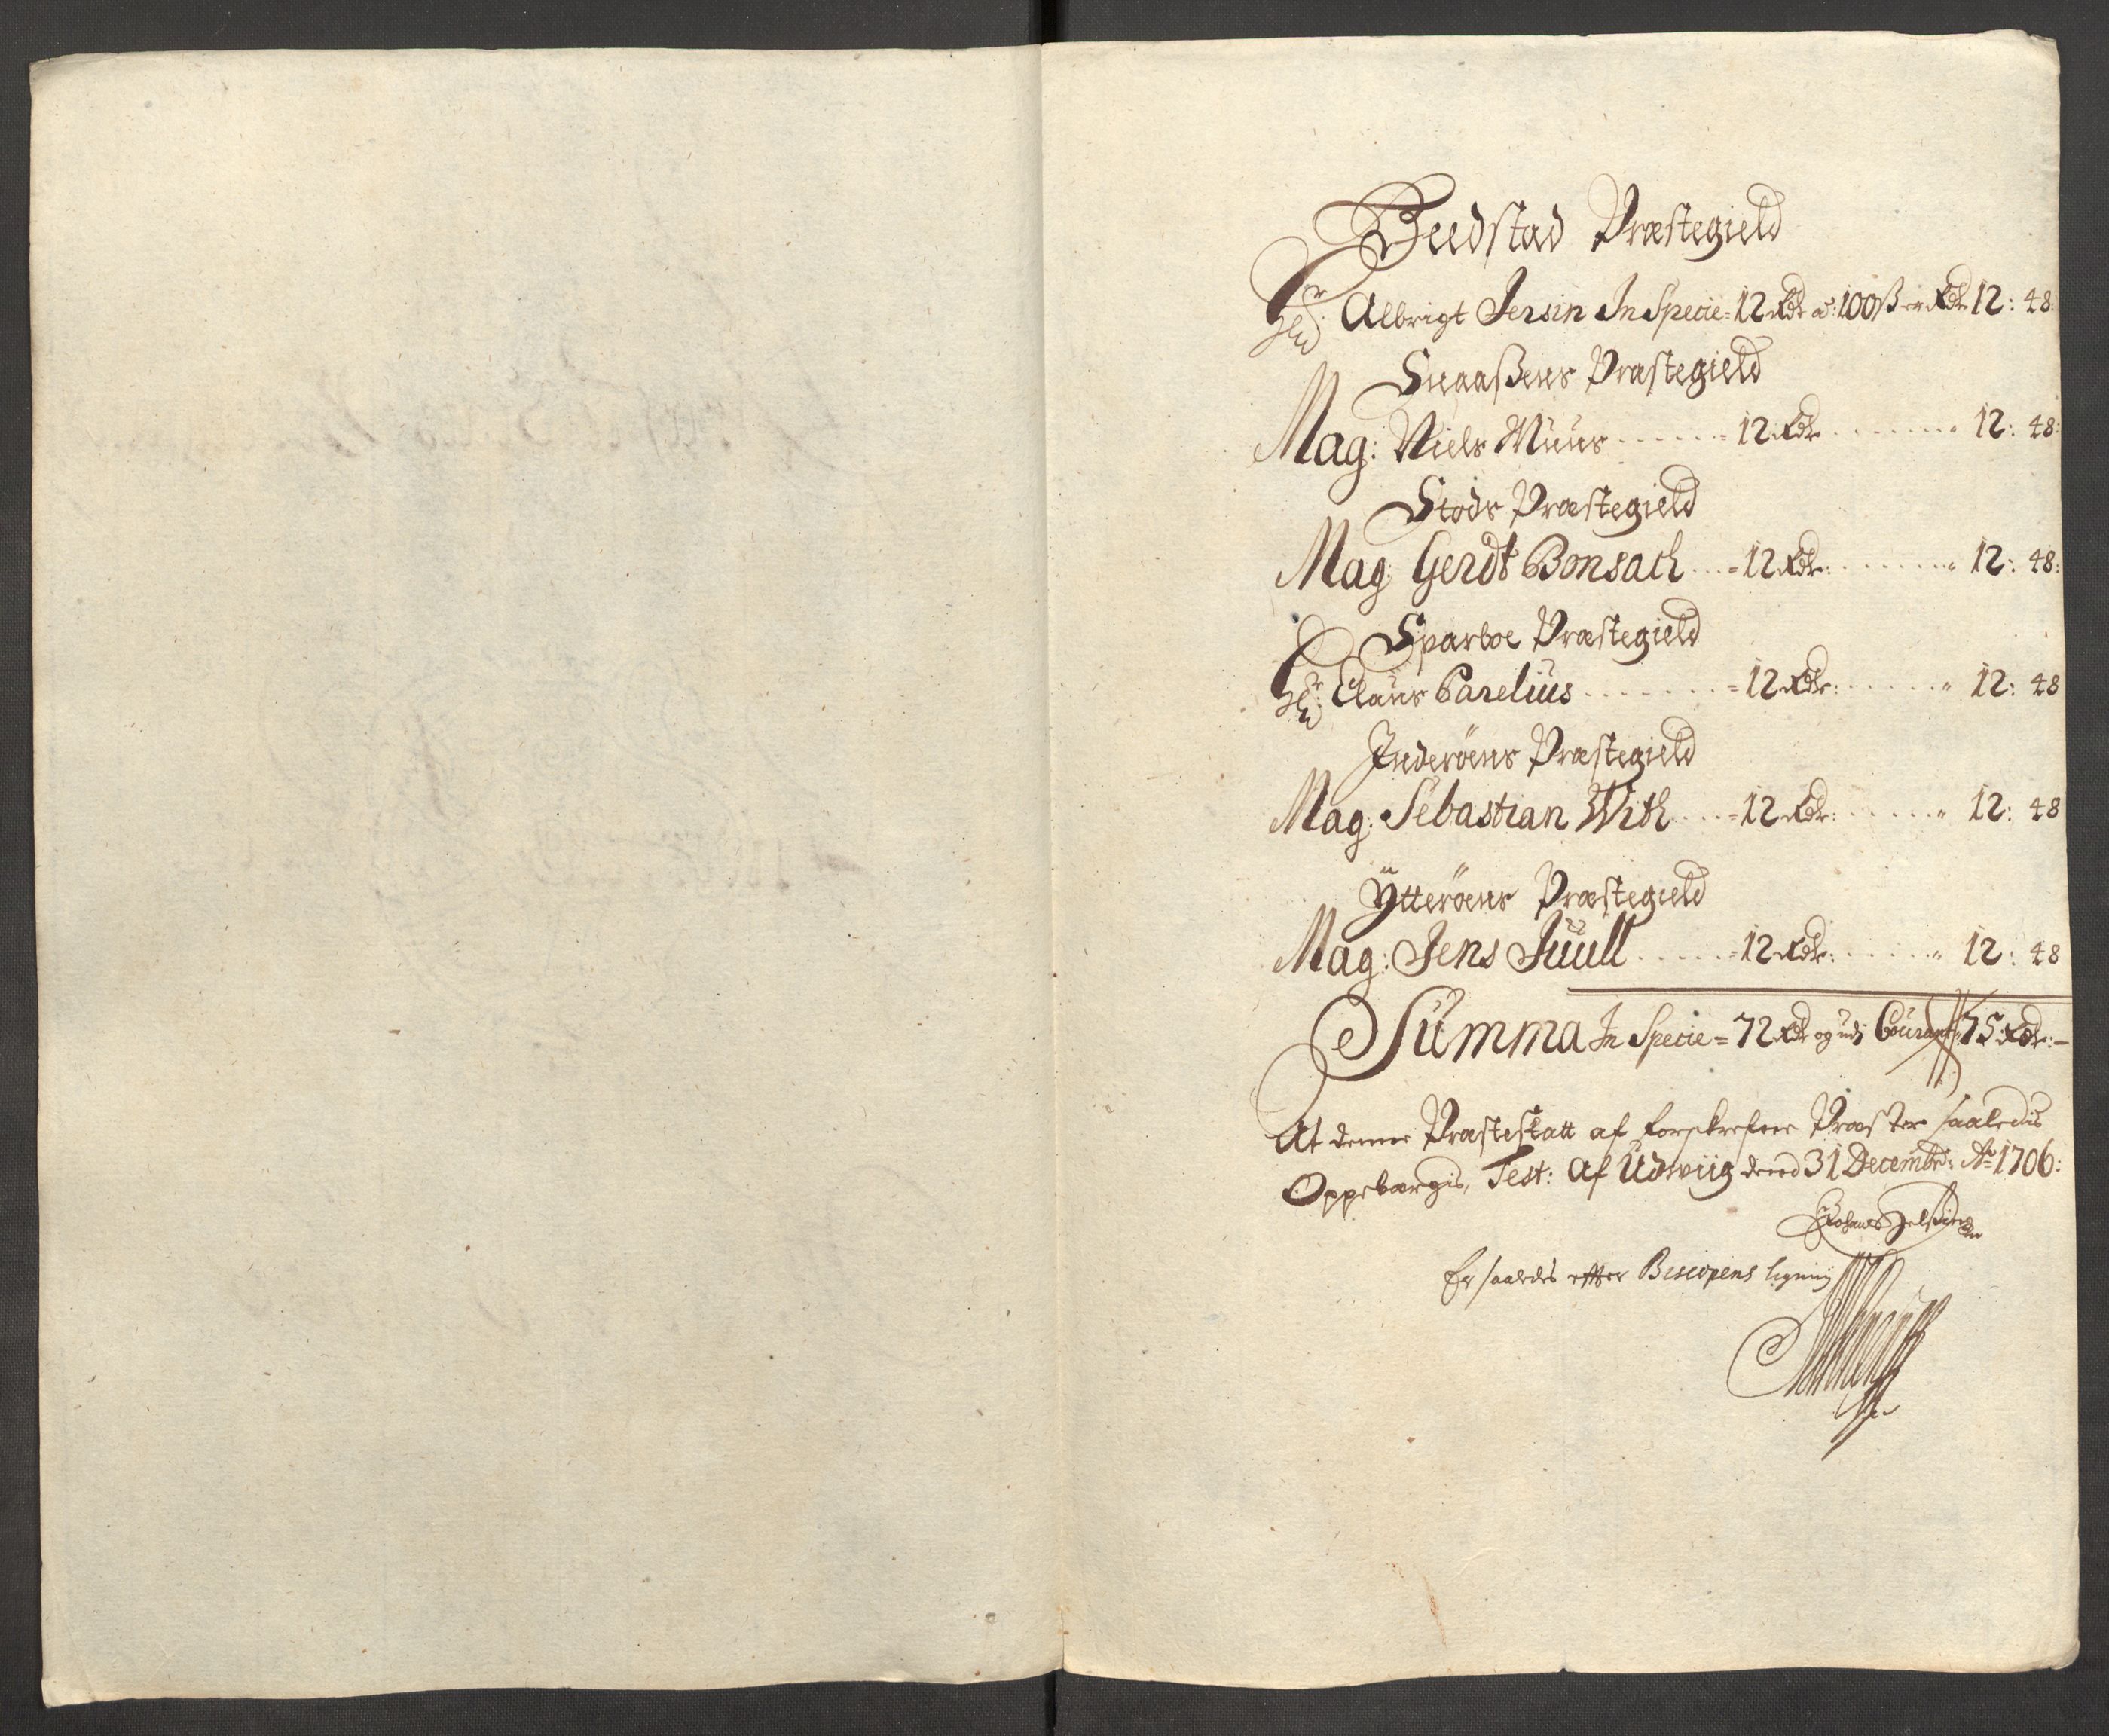 Beedstad Præstegield
Hr: Albrigt Jersin In Specie = 12 Rdr a: 100 ß er Rdr 12: 48:
Snaaßens Præstegield
Mag: Niels Muus ...... = 12 Rdr ........ 12: 48:
Stods Præstegield
Mag: Gerdt Bonsach ... = 12 Rdr: ....... 12: 48:
Sparboe Præstegield
Hr: Claus Parelius ....... = 12 Rdr: ...... 12: 48
Inderöens Præstegield
Mag: Sebastian With .... = 12 Rdr: ...... 12: 48
Ÿtteröens Præstegield
Mag: Jens Juull ..... = 12 Rdr: ...... 12: 48
Summa In Specie = 72 Rdr og udj Courant 75 Rdr: –
At denne Præsteskatt af forskrefne Præster saaledis
Oppebærgis, Test: Af Udwiig dend 31 Decembr: Ao 1706:
Er saaledes efter Biscopens ligning